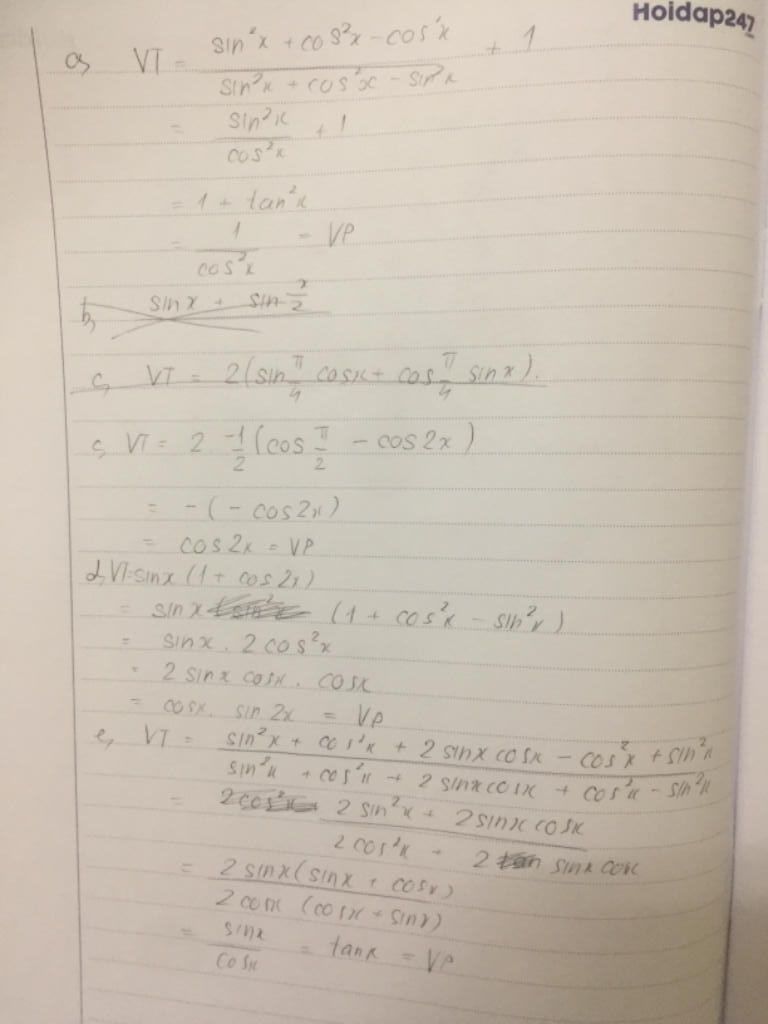 Hoidap247
a, VT = (sin²x + cos²x - cos²x)/(sin²x + cos²x - sin²x) + 1
= sin²x/cos²x + 1
= 1 + tan²x
= 1/cos²x = VP
b, sin x + sin x/2
c, VT = 2(sin π/4 cosx + cos π/4 sinx).
c, VT = 2. -1/2 (cos π/2 - cos2x)
= -(- cos2x)
= cos2x = VP
d, VT = sinx (1 + cos2x)
= sinx (1 + cos²x - sin²x)
= sinx . 2cos²x
= 2 sinx cosx . cosx
= cosx. sin2x = VP
e, VT = (sin²x + cos²x + 2sinx cosx - cos²x + sin²x)/(sin²x + cos²x + 2sinxcosx + cos²x - sin²x)
= (2sin²x + 2sinx cosx)/(2cos²x + 2 sinx cosx)
= 2sinx(sinx + cosx)/2cosx (cosx + sinx)
= sinx/cosx = tanx = VP